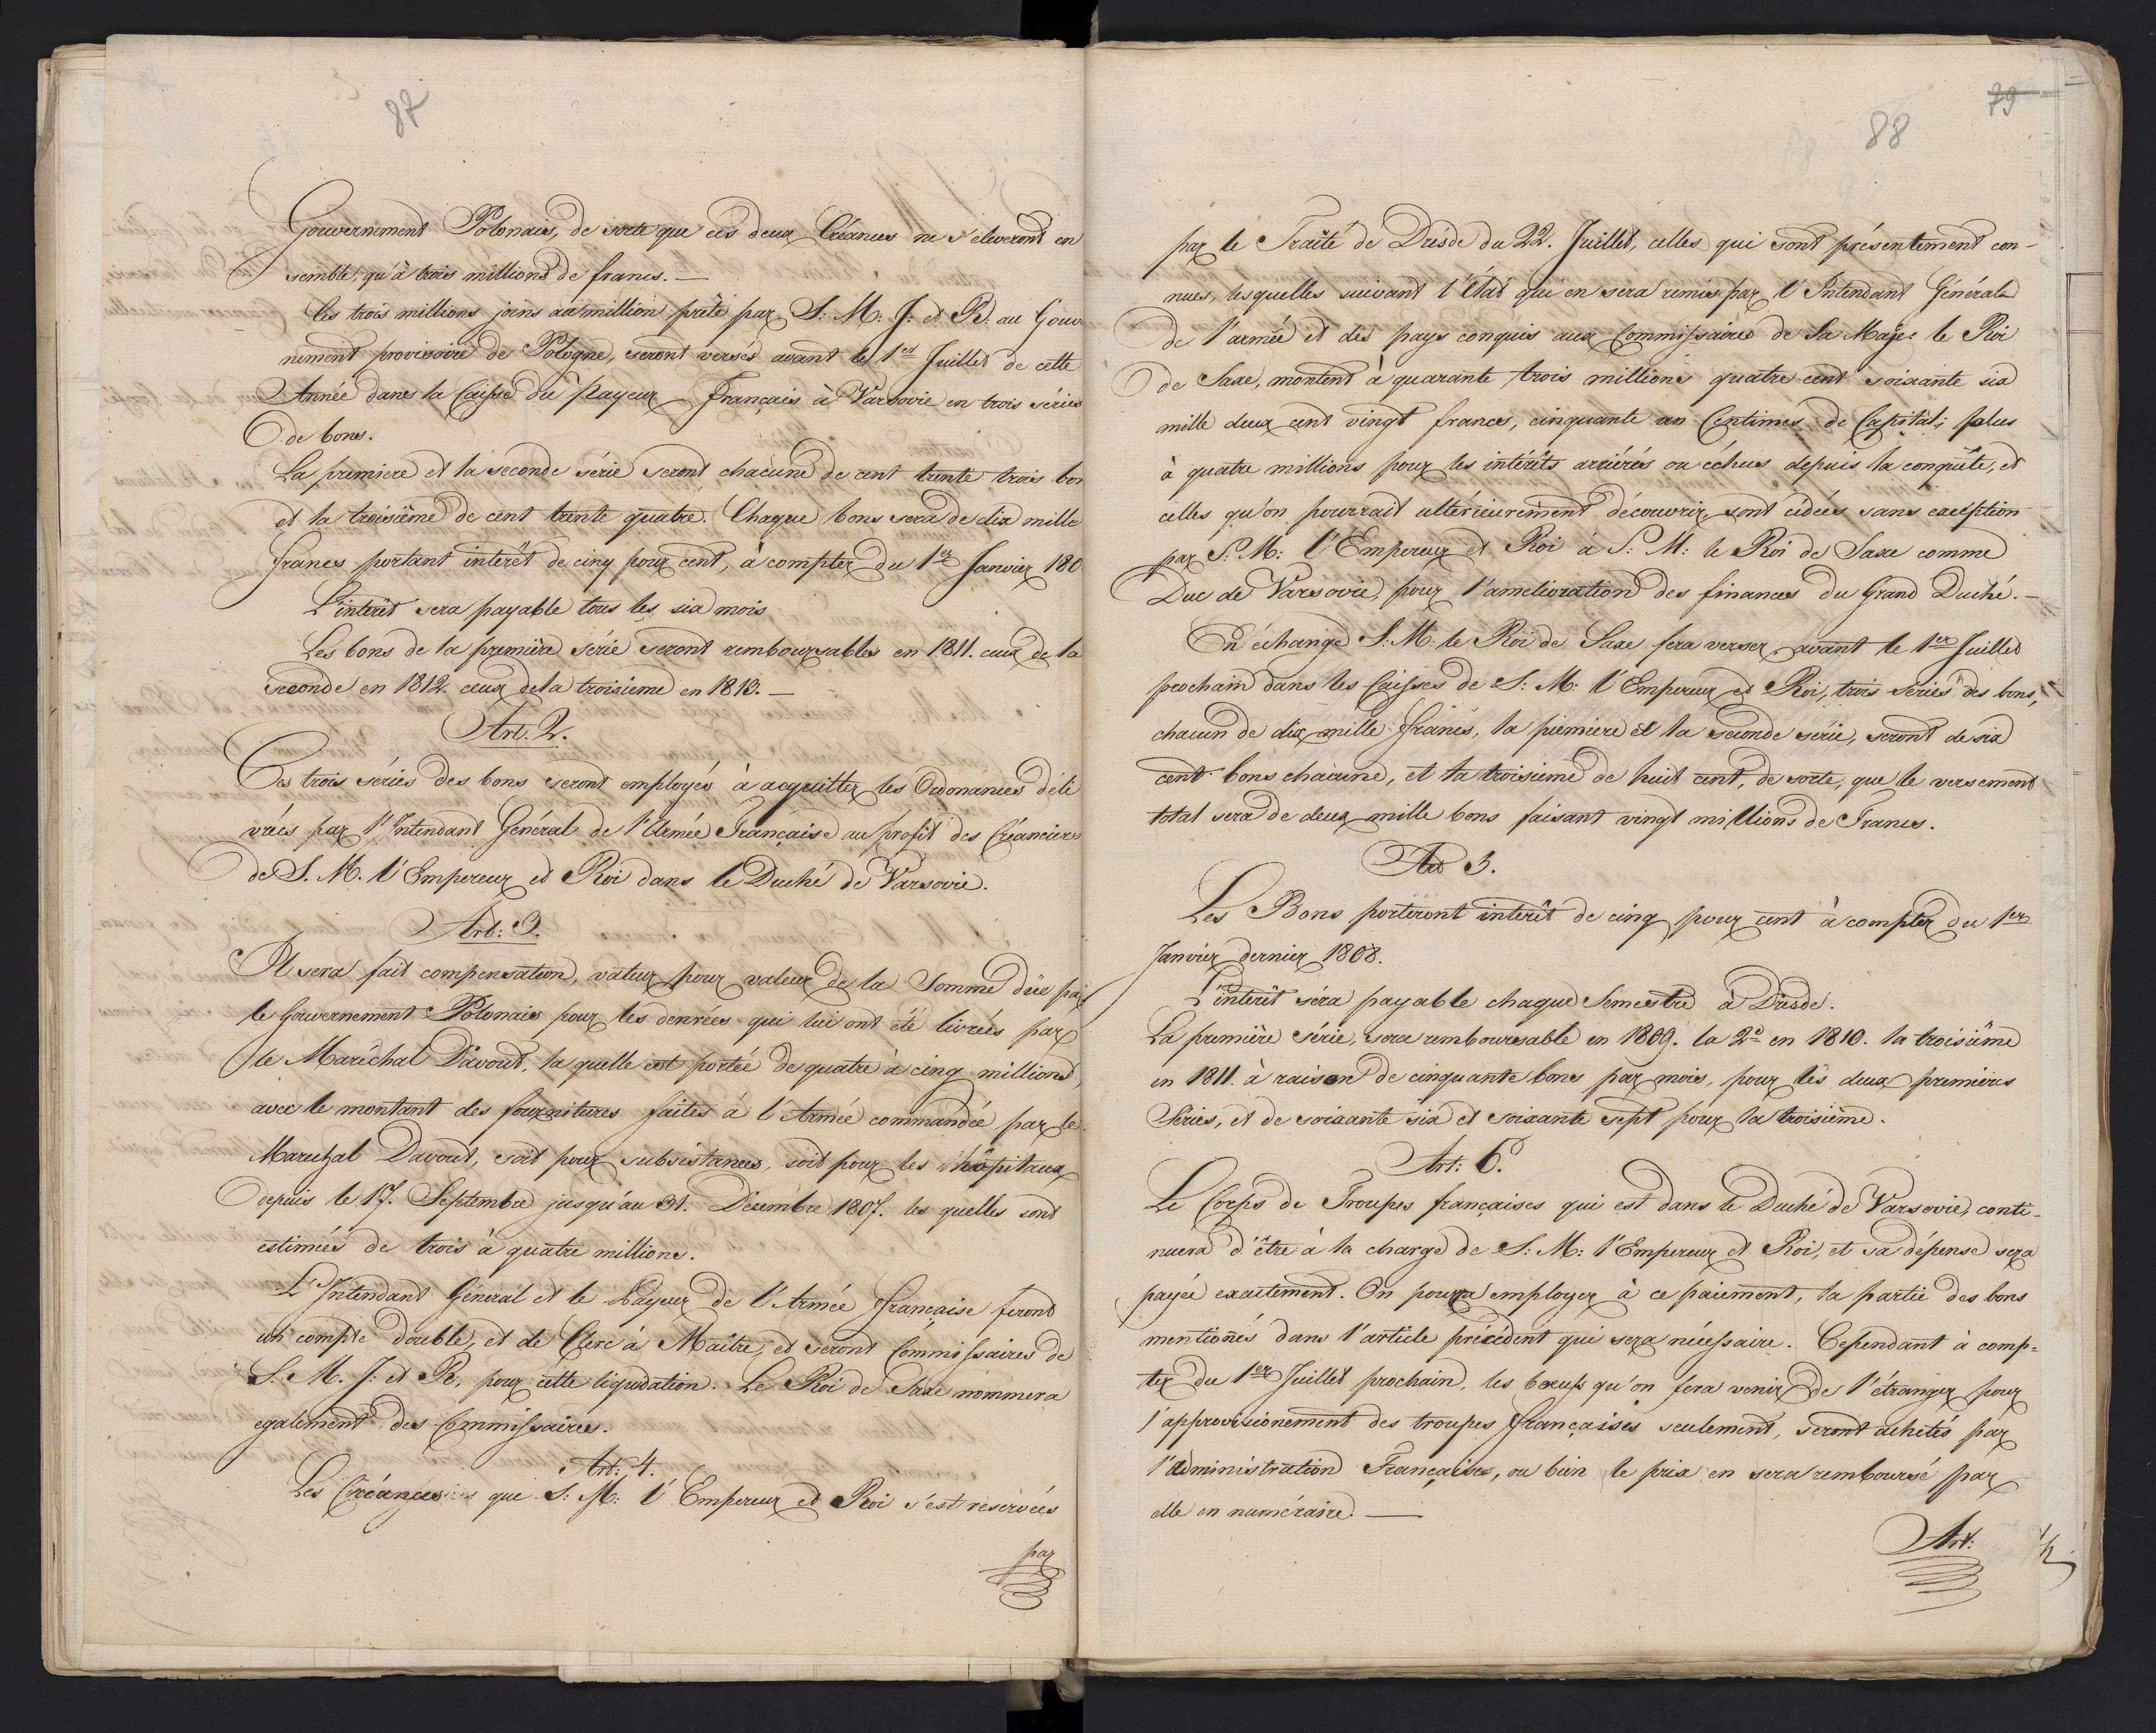 87
Gouvernement Polonais, de sorte que ces deux Créances ne s'éleveront en
semble, qu'à trois millions de francs. —
Ces trois millions joins au million prêté par S: M: J: et R: au Gouv
nement provisoire de Pologne, seront versés avant le 1er Juillet de cette
Année dans la Caisse du Payeur Français à Varsovie en trois séries
de bons.
La premiere et la seconde série seront chacune de cent trente trois bon
et la troisième de cent trente quatre. Chaque bons sera de dix mille
francs portant interêt de cinq pour cent, à compter du 1er Janvier 180
L'interêt sera payable tous les six mois
Les bons de la première série seront remboursables en 1811. ceux de la
seconde en 1812. ceux de la troisieme en 1813. —
Art. 2.
Ces trois séries des bons seront employés à acquitter les Ordonances déli
vrées par l'Intendant Général de l'Armée Française au profit des Créanciers
de S. M. l'Empereur et Roi dans le Duché de Varsovie.
Art: 3.
Il sera fait compensation, valeur pour valeur de la Somme düe par
le Gouvernement Polonais pour les denrées qui lui ont été livrées par
le Maréchal Davout, la quelle est portée de quatre à cinq millions,
avec le montant des fournitures faites à l'Armée commandée par le
Marechal Davout, soit pour subsistances, soit pour les hôpitaux
depuis le 17. Septembre jusqu'au 31. Décembre 1807. les quelles sont
estimées de trois à quatre millions.
L'Intendant Géneral et le Payeur de l'Armée Française feront
un compte double, et de Clerc à Maître, et seront Commissaires de
S. M. J. et R. pour cette liquidation. Le Roi de Saxe nommera
egalement des Commissaires.
Art: 4.
Les Créances que S: M: l'Empereur et Roi s'est reservées
par
79
88
par le Traité de Dresde du 22. Juillet, celles qui sont présentement con-
nues, lesquelles suivant l'État qui en sera remis par l'Intendant Générale
de l'armée et des pays conquis aux Commissaires de Sa Maje: le Roi
de Saxe, montent à quarante trois millions quatre cent soixante six
mille deux cent vingt francs, cinquante un Centimes de Capital; plus
à quatre millions pour les intérêts arriérés ou échus depuis la conquête, et
celles qu'on pourrait ultérieurement découvrir, sont cédées sans exception
par S: M: l'Empereur et Roi à S: M: le Roi de Saxe comme
Duc de Varsovie, pour l'amelioration des finances du Grand Duché. —
En échange S: M. le Roi de Saxe fera verser avant le 1er Juillet
prochain dans les Caisses de S: M: l'Empereur et Roi, trois séries des bons,
chacun de dix mille francs, la premiere et la seconde série, seront de six
cent bons chacune, et la troisieme de huit cent, de sorte, que le versement
total sera de deux mille bons faisant vingt millions de Francs.
Art 5.
Les Bons porteront interêt de cinq pour cent à compter du 1er
Janvier dernier 1808.
L'interêt séra payable chaque Semestre à Dresde.
La première série, sera remboursable en 1809. la 2e en 1810. la troisième
en 1811. à raison de cinquante bons par mois, pour les deux premieres
Séries, et de soixante six et soixante sept pour la troisième.
Art: 6.
Le Corps de Troupes françaises qui est dans le Duché de Varsovie, conti-
nuera d'être à la charge de S: M: l'Empereur et Roi, et sa dépense sera
payée exactement. On pourra employer à ce paiement, la partie des bons
mentionés dans l'article précédent qui sera nécessaire. Cependant à comp-
ter du 1er Juillet prochain, les boeufs qu'on fera venir de l'étranger pour
l'approvisionement des troupes françaises seulement, seront achetés par
l'administration Française, ou bien le prix en sera remboursé par
elle en numéraire. —
Art: